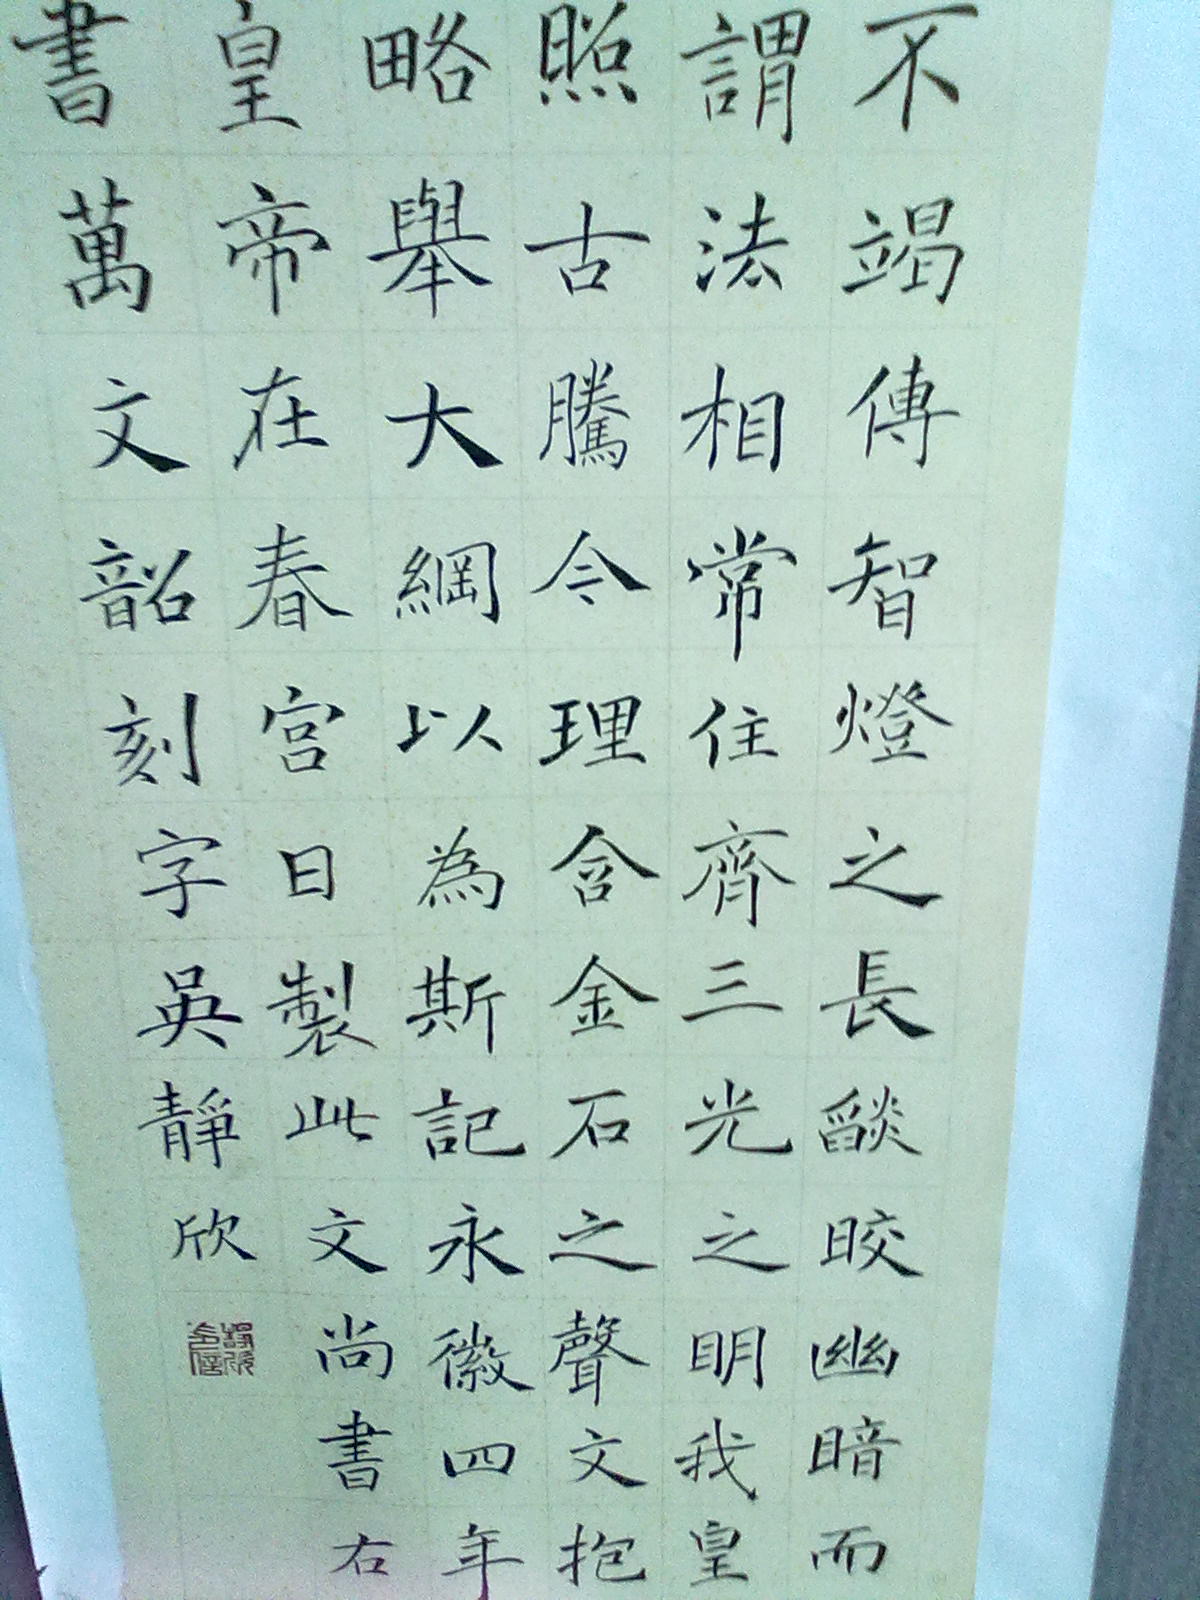 不竭傳智燈之長燄皎幽暗而
謂法相常住齊三光之明我皇
照古騰令理含金石之聲文抱
略舉大綱以為斯記永徽四年
皇帝在春宮日製此文尚書右
書萬文韶刻字吳靜欣